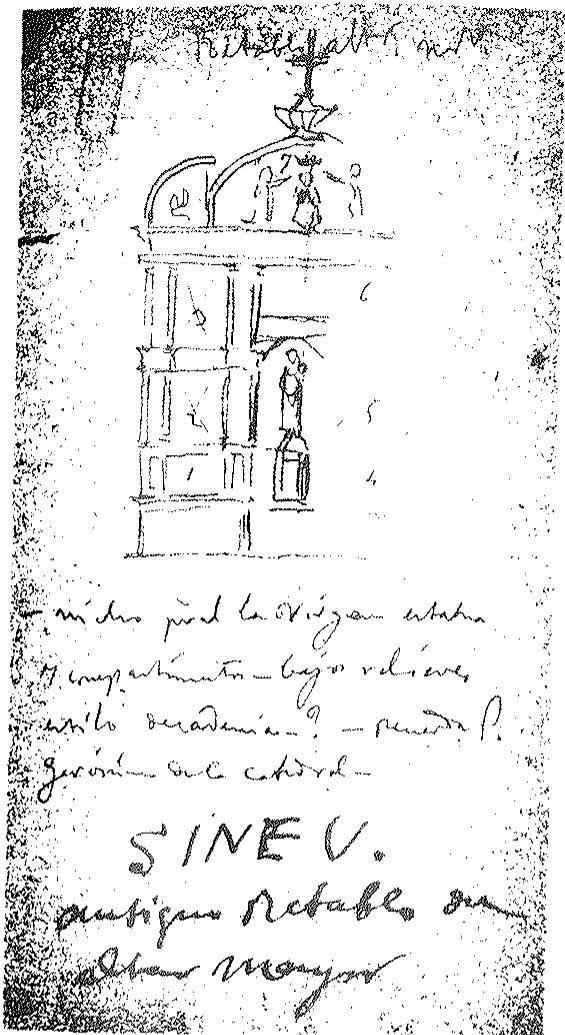 Retablo alt. m.
7
6
5
4
1
nicho pral la Virgen estatua
7 compartimentos – bajos relieves
estilo decadencia? – recuerda P.
Gerónimo de la catedral –
SINEU.
antiguo Retablo del
altar mayor